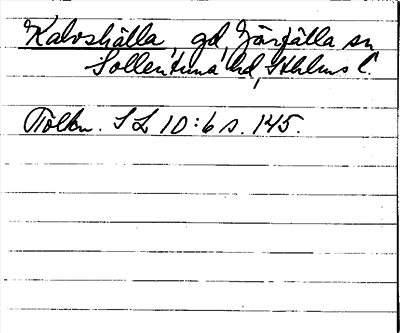 Kalvshälla, gd, Järfälla sn
Sollentuna hd, Sthlms l.
Tolkn. SL 10:6 s. 145.